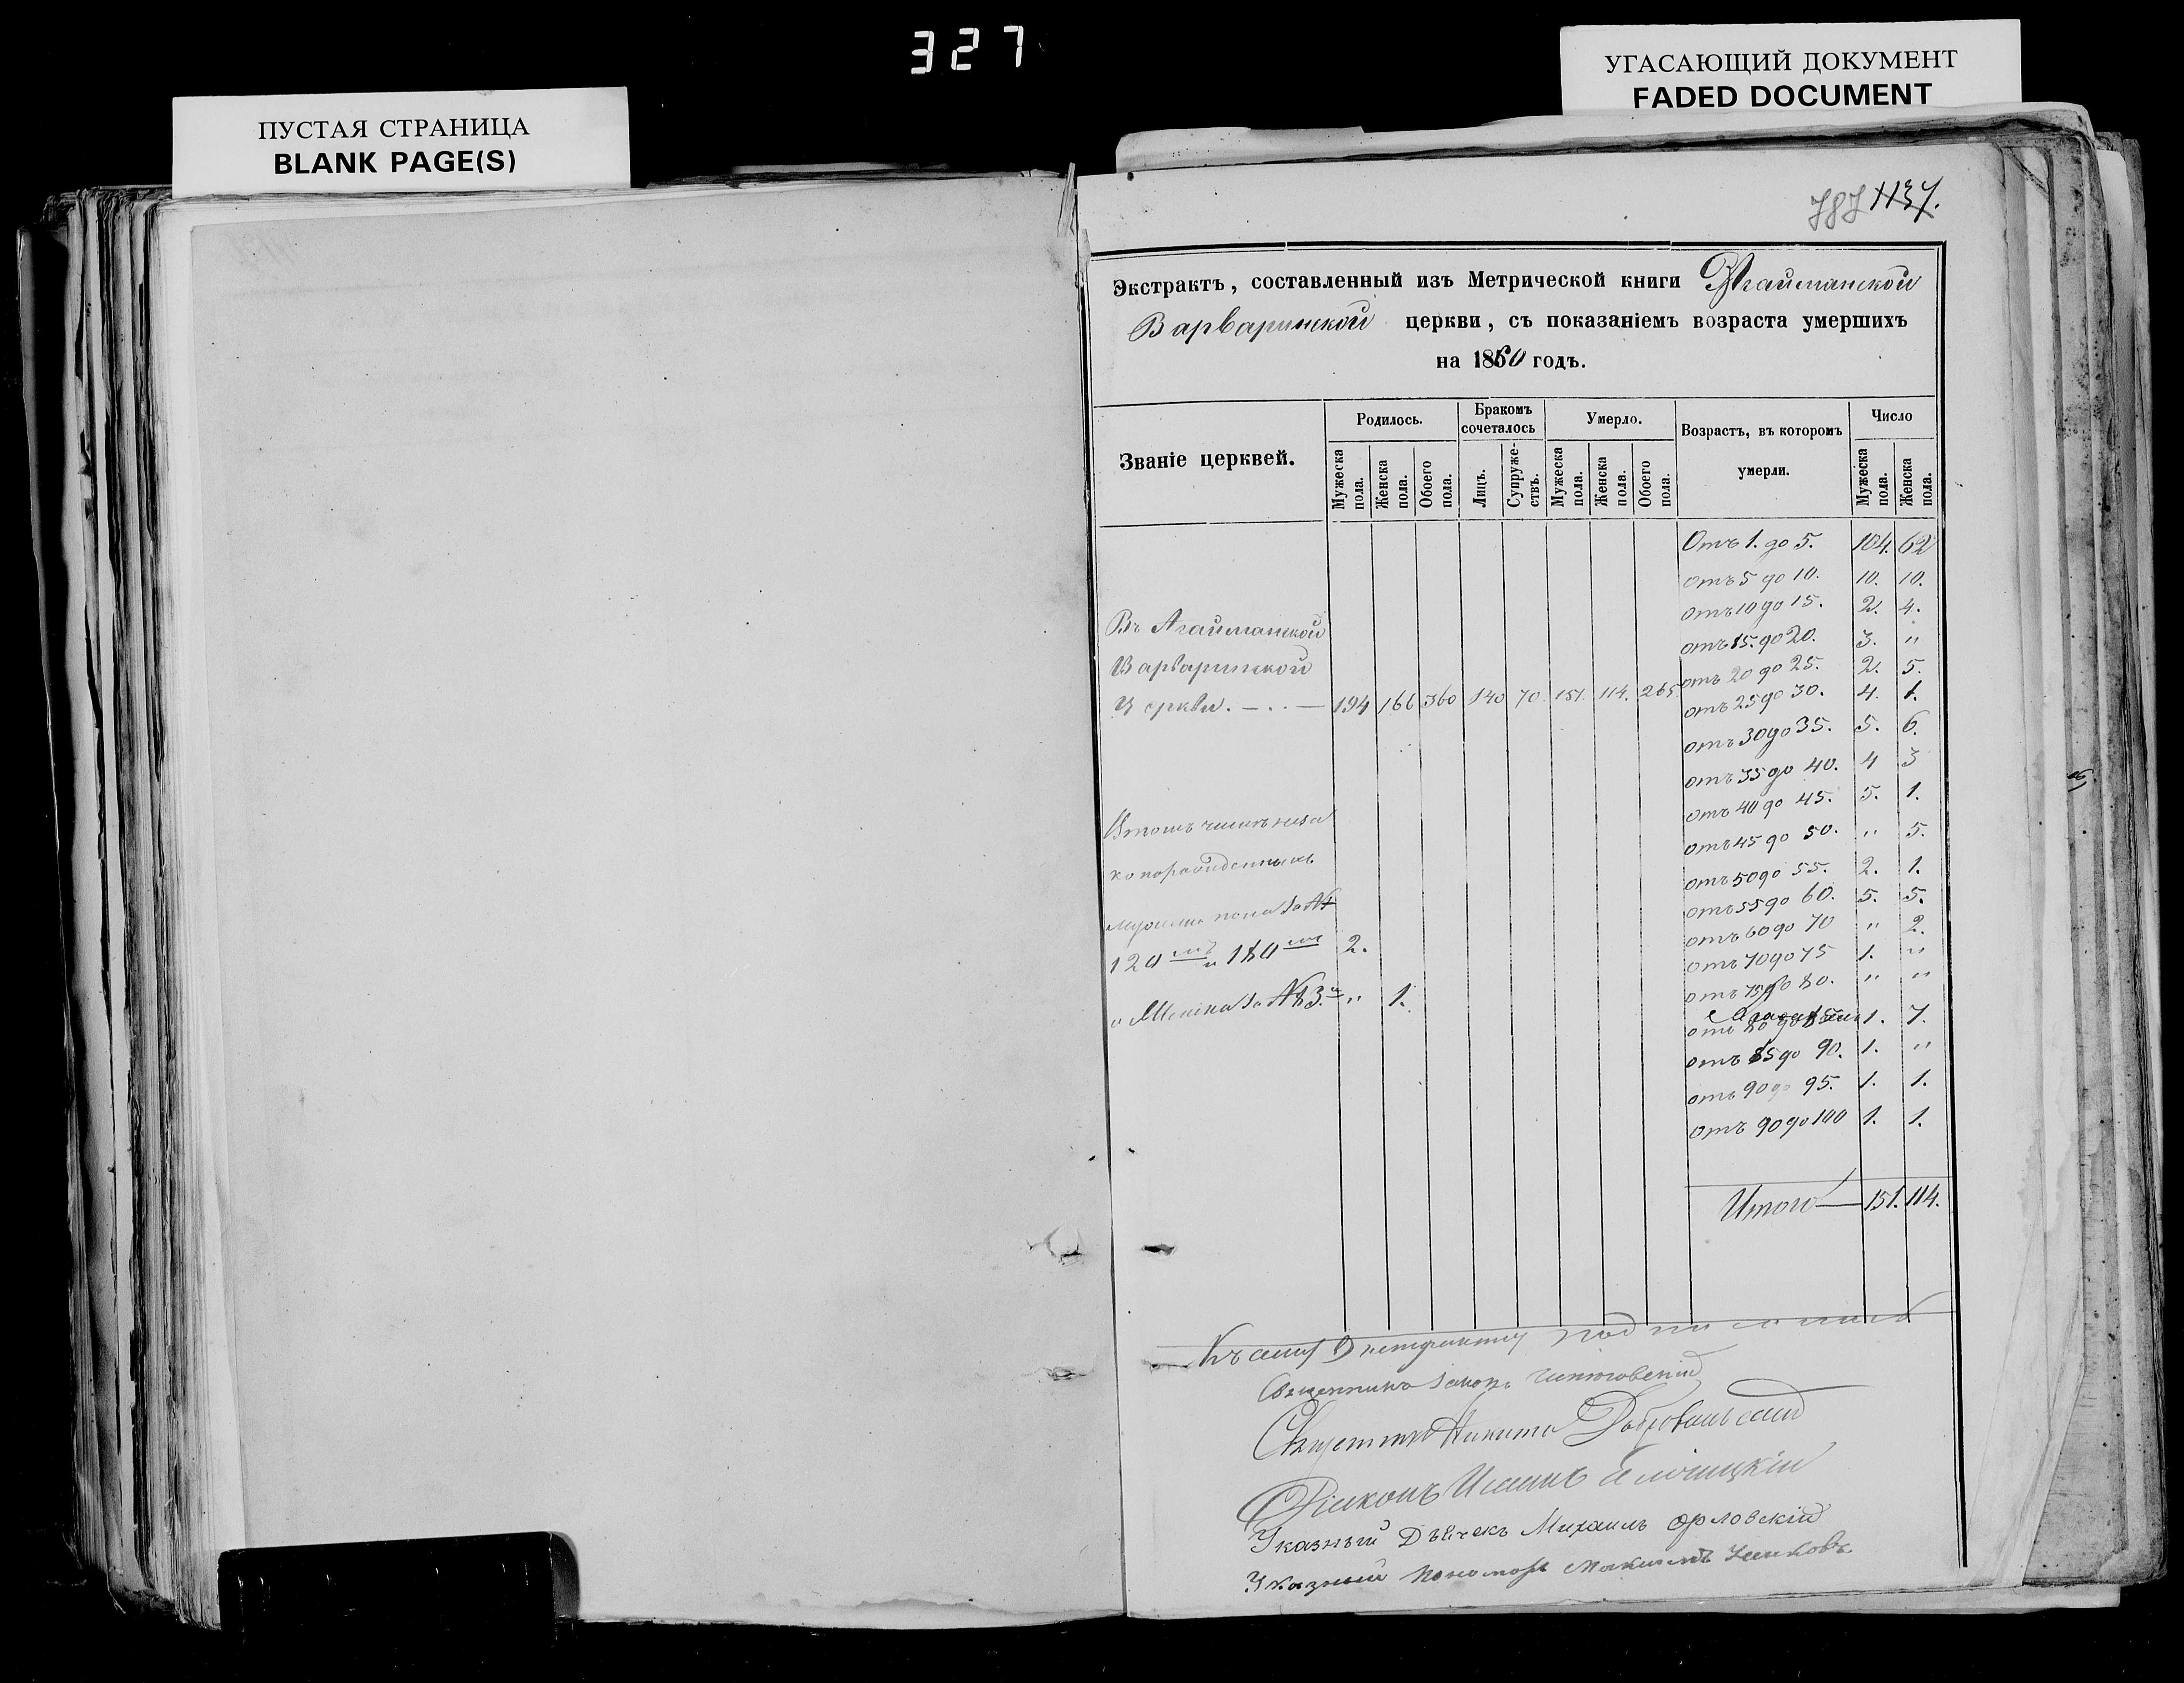 327
ПУСТАЯ СТРАНИЦА
BLANK PAGE(S)
УГАСАЮЩИЙ ДОКУМЕНТ
FADED DOCUMENT
787 1137.
Экстрактъ, составленный изъ Метрической книги Агайманской
Варваринской церкви, съ показаніемъ возраста умершихъ
на 1860 годъ.
Званіе церквей.
Родилось.
Бракомъ сочеталось
Умерло.
Возрастъ, въ которомъ умерли.
Число
Мужеска пола.
Женска пола.
Обоего пола.
Лицъ.
Супружествъ.
Мужеска пола.
Женска пола.
Обоего пола.
Мужеска пола.
Женска пола.
Отъ 1. до 5. 104. 62
отъ 5 до 10. 10. 10.
отъ 10 до 15. 2. 4.
отъ 15. до 20. 3. "
отъ 20 до 25. 2. 5.
отъ 25 до 30. 4. 1.
отъ 30 до 35. 5. 6.
отъ 35 до 40. 4 3
отъ 40 до 45. 5. 1.
отъ 45 до 50. " 5.
отъ 50 до 55. 2. 1.
отъ 55 до 60. 5. 5.
отъ 60 до 70 " 2.
отъ 70 до 75 1. "
отъ 75 до 80. " "
отъ 80 до 85 1. 7.
отъ 85 до 90. 1. "
отъ 90 до 95. 1. 1.
отъ 90 до 100 1. 1.
Итого — 151. 114.
Въ Агайманской
Варваринской
Церкви. — . . — 194 166 360 140 70. 151. 114. 265.
Втомъ числѣ неза
конорожденныхъ
мужеска пола за №
120 мъ и 180 мъ 2.
и Женска за № 3. " 1.
Къ сему Экстракту подписались
Священникъ
Священникъ Никита
Діаконъ
Указный Дьячекъ Михаилъ Орловскій
Указный Пономарь Максимъ